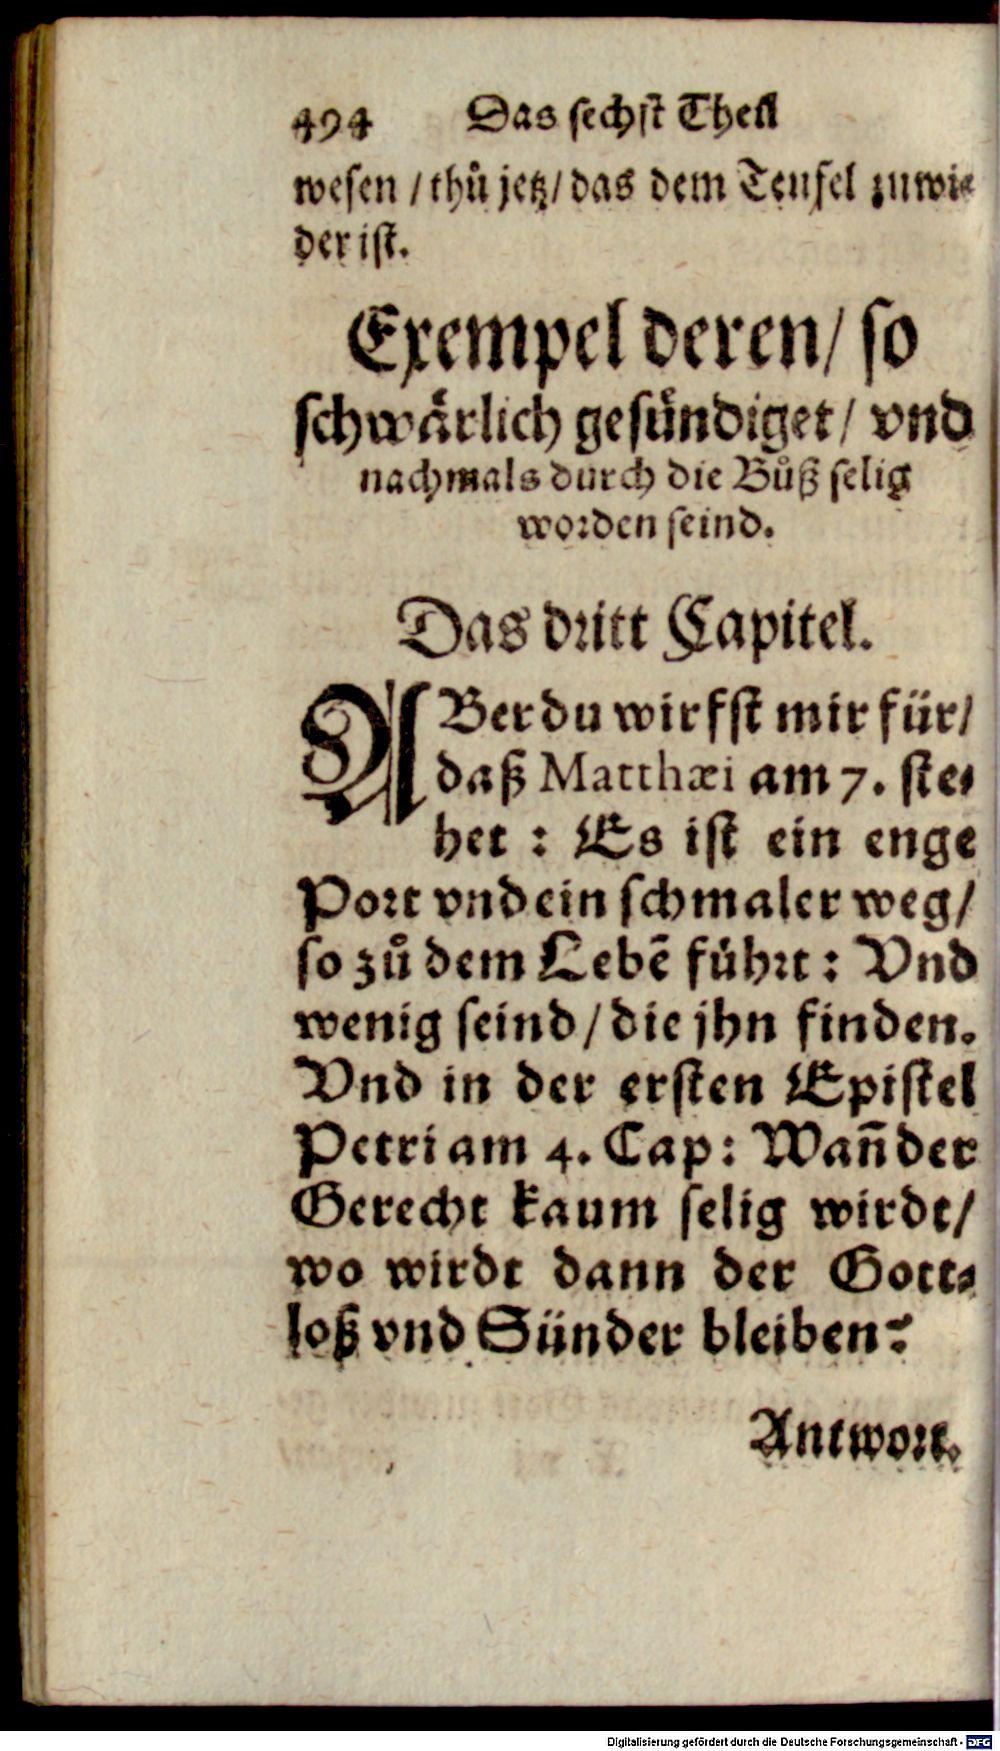 494 Das sechst Theil
wesen / thů jetz / das dem Teufel zuwi⸗
der ist.
Exempel deren / so
schwaͤrlich gesuͤndiget / vnd
nachmals durch die Bůß selig
worden seind.
Das dritt Capitel.
ABer du wirfst mir für /
daß Matthæi am 7. ste⸗
het : Es ist ein enge
Port vnd ein schmaler weg /
so zů dem Lebē führt : Vnd
wenig seind / die jhn finden.
Vnd in der ersten Epistel
Petri am 4. Cap : Wañ der
Gerecht kaum selig wirdt /
wo wirdt dann der Gott⸗
loß vnd Sünder bleiben?
Antwort.
Digitalisierung gefördert durch die Deutsche Forschungsgemeinschaft - DFG